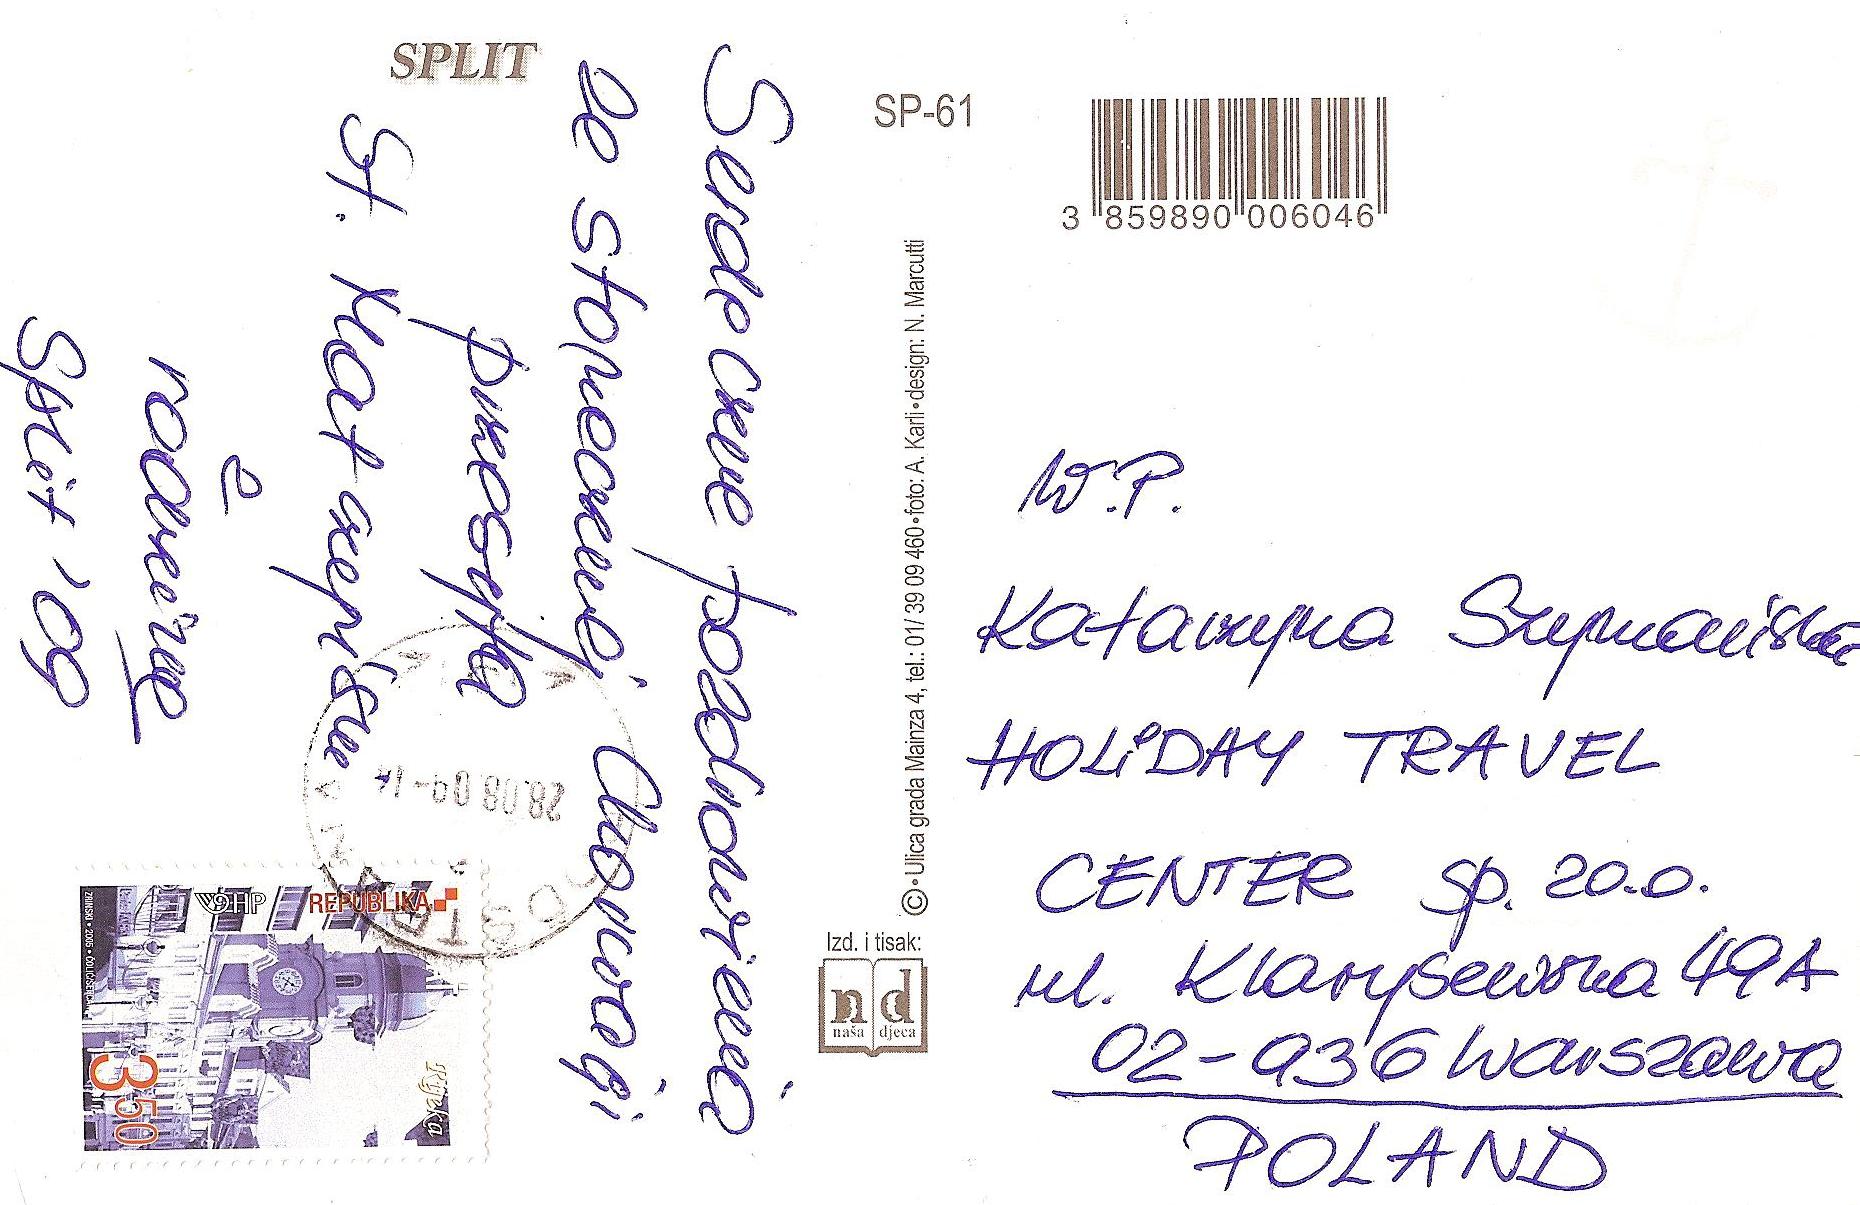 SPLIT
Serdeczne pozdrowienia
ze słonecznej Chorwacji
przesyła
St. Matszepiśin
z
rodziną
Split '09
SP-61
3 859890 006046
© • Ulica grada Mainza 4, tel.: 01/ 39 09 460 • foto: A. Karli • design: N. Marcutti
Izd. i tisak:
nd
naša djeca
W.P.
Katarzyna Szymańska
HOLiDAY TRAVEL
CENTER sp. zo.o.
ul. Klarysewska 49A
02-936 Warszawa
POLAND
28.08.09-14
REPUBLIKA
HP
Rijeka
3,50